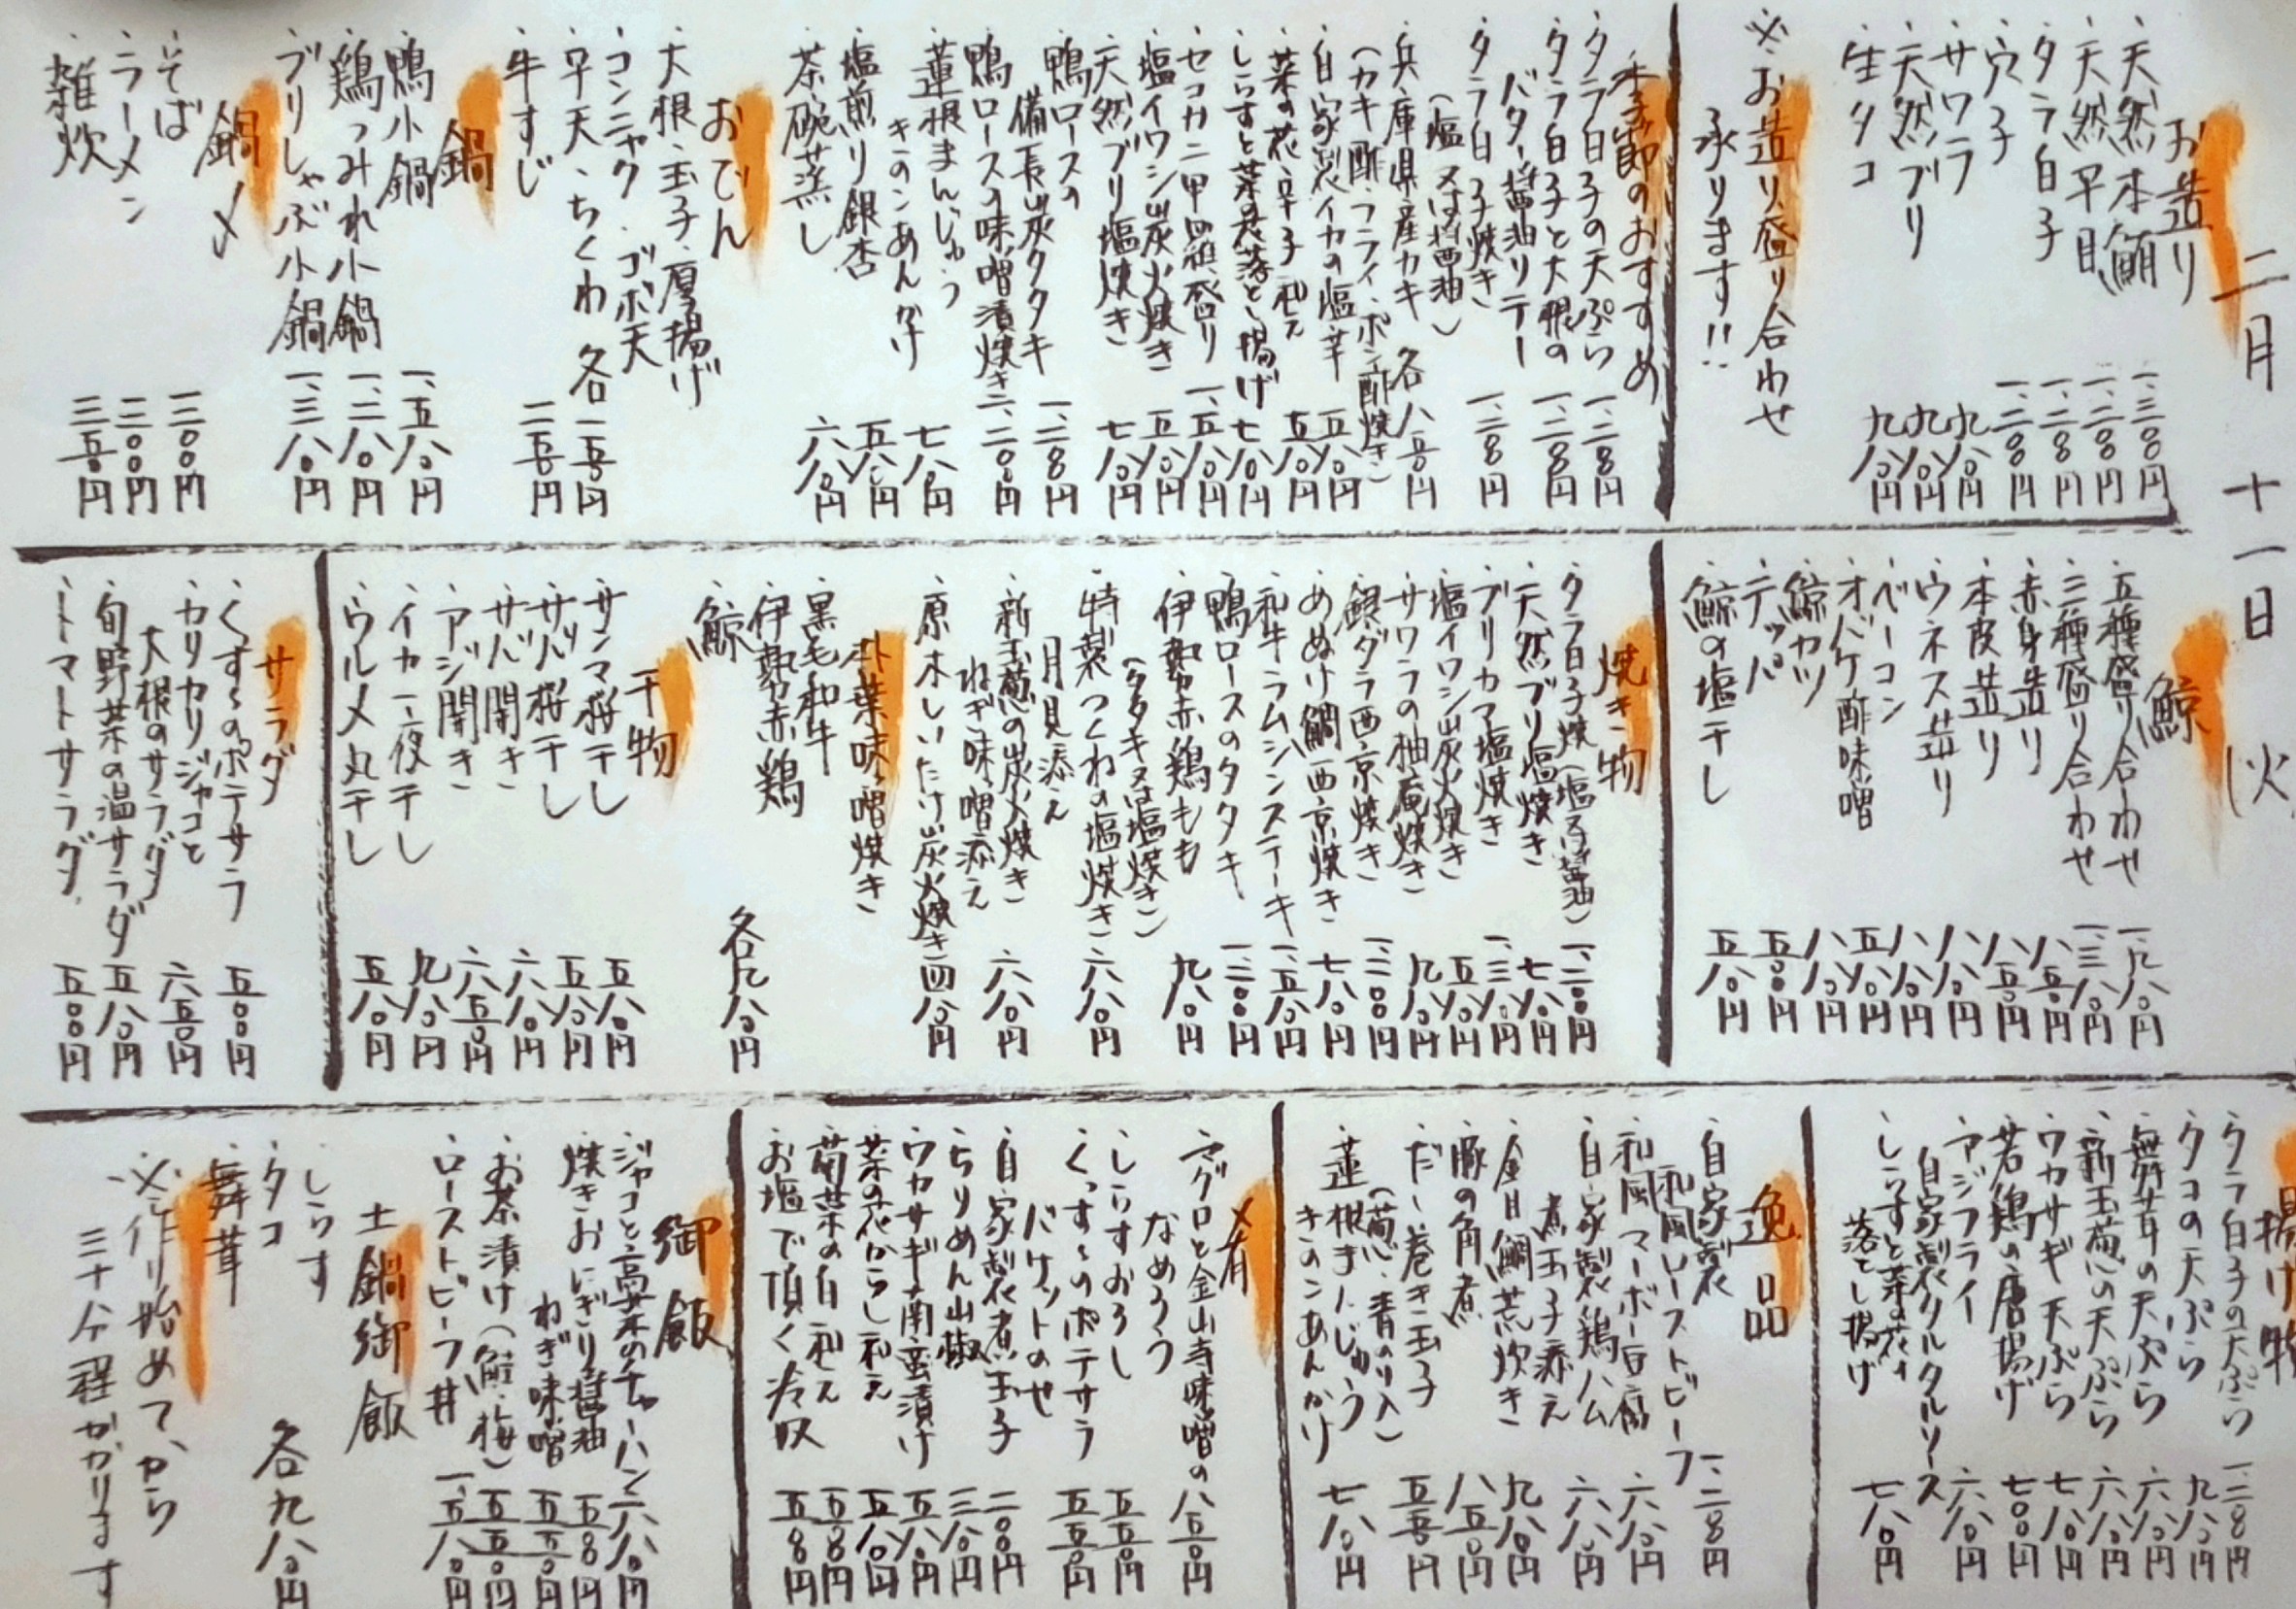 二月十一日(火)
お造り
・天然本鮪 一、三〇〇円
・天然平目 一、二〇〇円
・タラ白子 一、二〇〇円
・穴子 一、二〇〇円
・サワラ 九八〇円
・天然ブリ 九八〇円
・生タコ 九八〇円
※お造り盛り合わせ
承ります!!
季節のおすすめ
・タラ白子の天ぷら 一、二〇〇円
・タラ白子と大根の
バター醤油ソテー 一、二〇〇円
・タラ白子焼き
(塩又は醤油) 一、二〇〇円
・兵庫県産カキ 各八五〇円
(カキ酢・フライ・ポン酢焼き)
・自家製イカの塩辛 五八〇円
・菜の花辛子和え 五八〇円
・しらすと菜の花落とし揚げ 七八〇円
・セコガニ甲羅盛り 一、五八〇円
・塩イワシ炭火焼き 五八〇円
・天然ブリ塩焼き 七八〇円
・鴨ロースの
備長炭タタキ 一、二〇〇円
・鴨ロースの味噌漬焼き 一、二〇〇円
・蓮根まんじゅう
きのこあんかけ 七八〇円
・塩煎り銀杏 五八〇円
・茶碗蒸し 六八〇円
おでん
・大根・玉子・厚揚げ
コンニャク・ゴボ天
平天・ちくわ 各二五〇円
・牛すじ 三五〇円
鍋
・鴨小鍋 一、五八〇円
・鶏つみれ小鍋 一、二八〇円
・ブリしゃぶ小鍋 一、三八〇円
鍋〆
・そば 二〇〇円
・ラーメン 二〇〇円
・雑炊 三五〇円
鯨
・五種盛り合わせ 一、九八〇円
・三種盛り合わせ 一、三八〇円
・赤身造り 八五〇円
・本皮造り 八五〇円
・ウネス造り 八八〇円
・ベーコン 八八〇円
・オバケ酢味噌 五八〇円
・鯨カツ 八八〇円
・テッパ 五五〇円
・鯨の塩干し 五八〇円
焼き物
・タラ白子焼(塩又は醤油) 一、二〇〇円
・天然ブリ塩焼き 七八〇円
・ブリカマ塩焼き 一、三八〇円
・塩イワシ炭火焼き 五八〇円
・サワラの柚庵焼き 九八〇円
・銀ダラ西京焼き 一、二〇〇円
・あぬけ鯛西京焼き 七八〇円
・和牛ラムシンステーキ 一、五八〇円
・鴨ロースのタタキ 一、二〇〇円
・伊勢赤鶏もも
(タタキ又は塩焼き) 九八〇円
・特製つくねの塩焼き
月見添え 六八〇円
・新玉葱の炭火焼き
ねぎ味噌添え 六八〇円
・原木しいたけ炭火焼き 四八〇円
朴葉味噌焼き
・黒毛和牛
・伊勢赤鶏
・鯨 各九八〇円
干物
・サンマ桜干し 五八〇円
・サバ桜干し 五八〇円
・サバ開き 六八〇円
・アジ開き 六五〇円
・イカ一夜干し 九八〇円
・ウルメ丸干し 五八〇円
サラダ
・くずしのポテサラ 五〇〇円
・カリカリジャコと
大根のサラダ 六五〇円
・旬野菜の温サラダ 五八〇円
・トマトサラダ 五〇〇円
揚げ物
・タラ白子の天ぷら 一、二〇〇円
・タコの天ぷら 九八〇円
・舞茸の天ぷら 六八〇円
・新玉葱の天ぷら 六八〇円
・ワカサギ天ぷら 七八〇円
・若鶏の唐揚げ 七〇〇円
・アジフライ
自家製タルタルソース 六八〇円
・しらすと菜の花の
落とし揚げ 七八〇円
逸品
・自家製
和風ローストビーフ 一、二〇〇円
・和風マーボー豆腐 六八〇円
・自家製鶏ハム
煮玉子添え 六八〇円
・金目鯛荒炊き 九八〇円
・豚の角煮 八五〇円
・だし巻き玉子
(葱・青のり入) 五五〇円
・蓮根まんじゅう
きのこあんかけ 七八〇円
〆肴
・マグロと金山寺味噌の
なめろう 八五〇円
・しらすおろし 五五〇円
・くずしのポテサラ
バケットのせ 五五〇円
・自家製煮玉子 二〇〇円
・ちりめん山椒 三八〇円
・ワカサギ南蛮漬け 五八〇円
・菜の花からし和え 五八〇円
・菊菜の白和え 五五〇円
・お塩で頂く冷奴 五〇〇円
御飯
・ジャコと高菜のチャーハン 六八〇円
・焼きおにぎり醤油 五〇〇円
ねぎ味噌 五五〇円
・お茶漬け(鮭・梅) 五五〇円
・ローストビーフ丼 一、五八〇円
土鍋御飯
・しらす
・タコ 各九八〇円
・舞茸
※作り始めてから
三十分程かかります